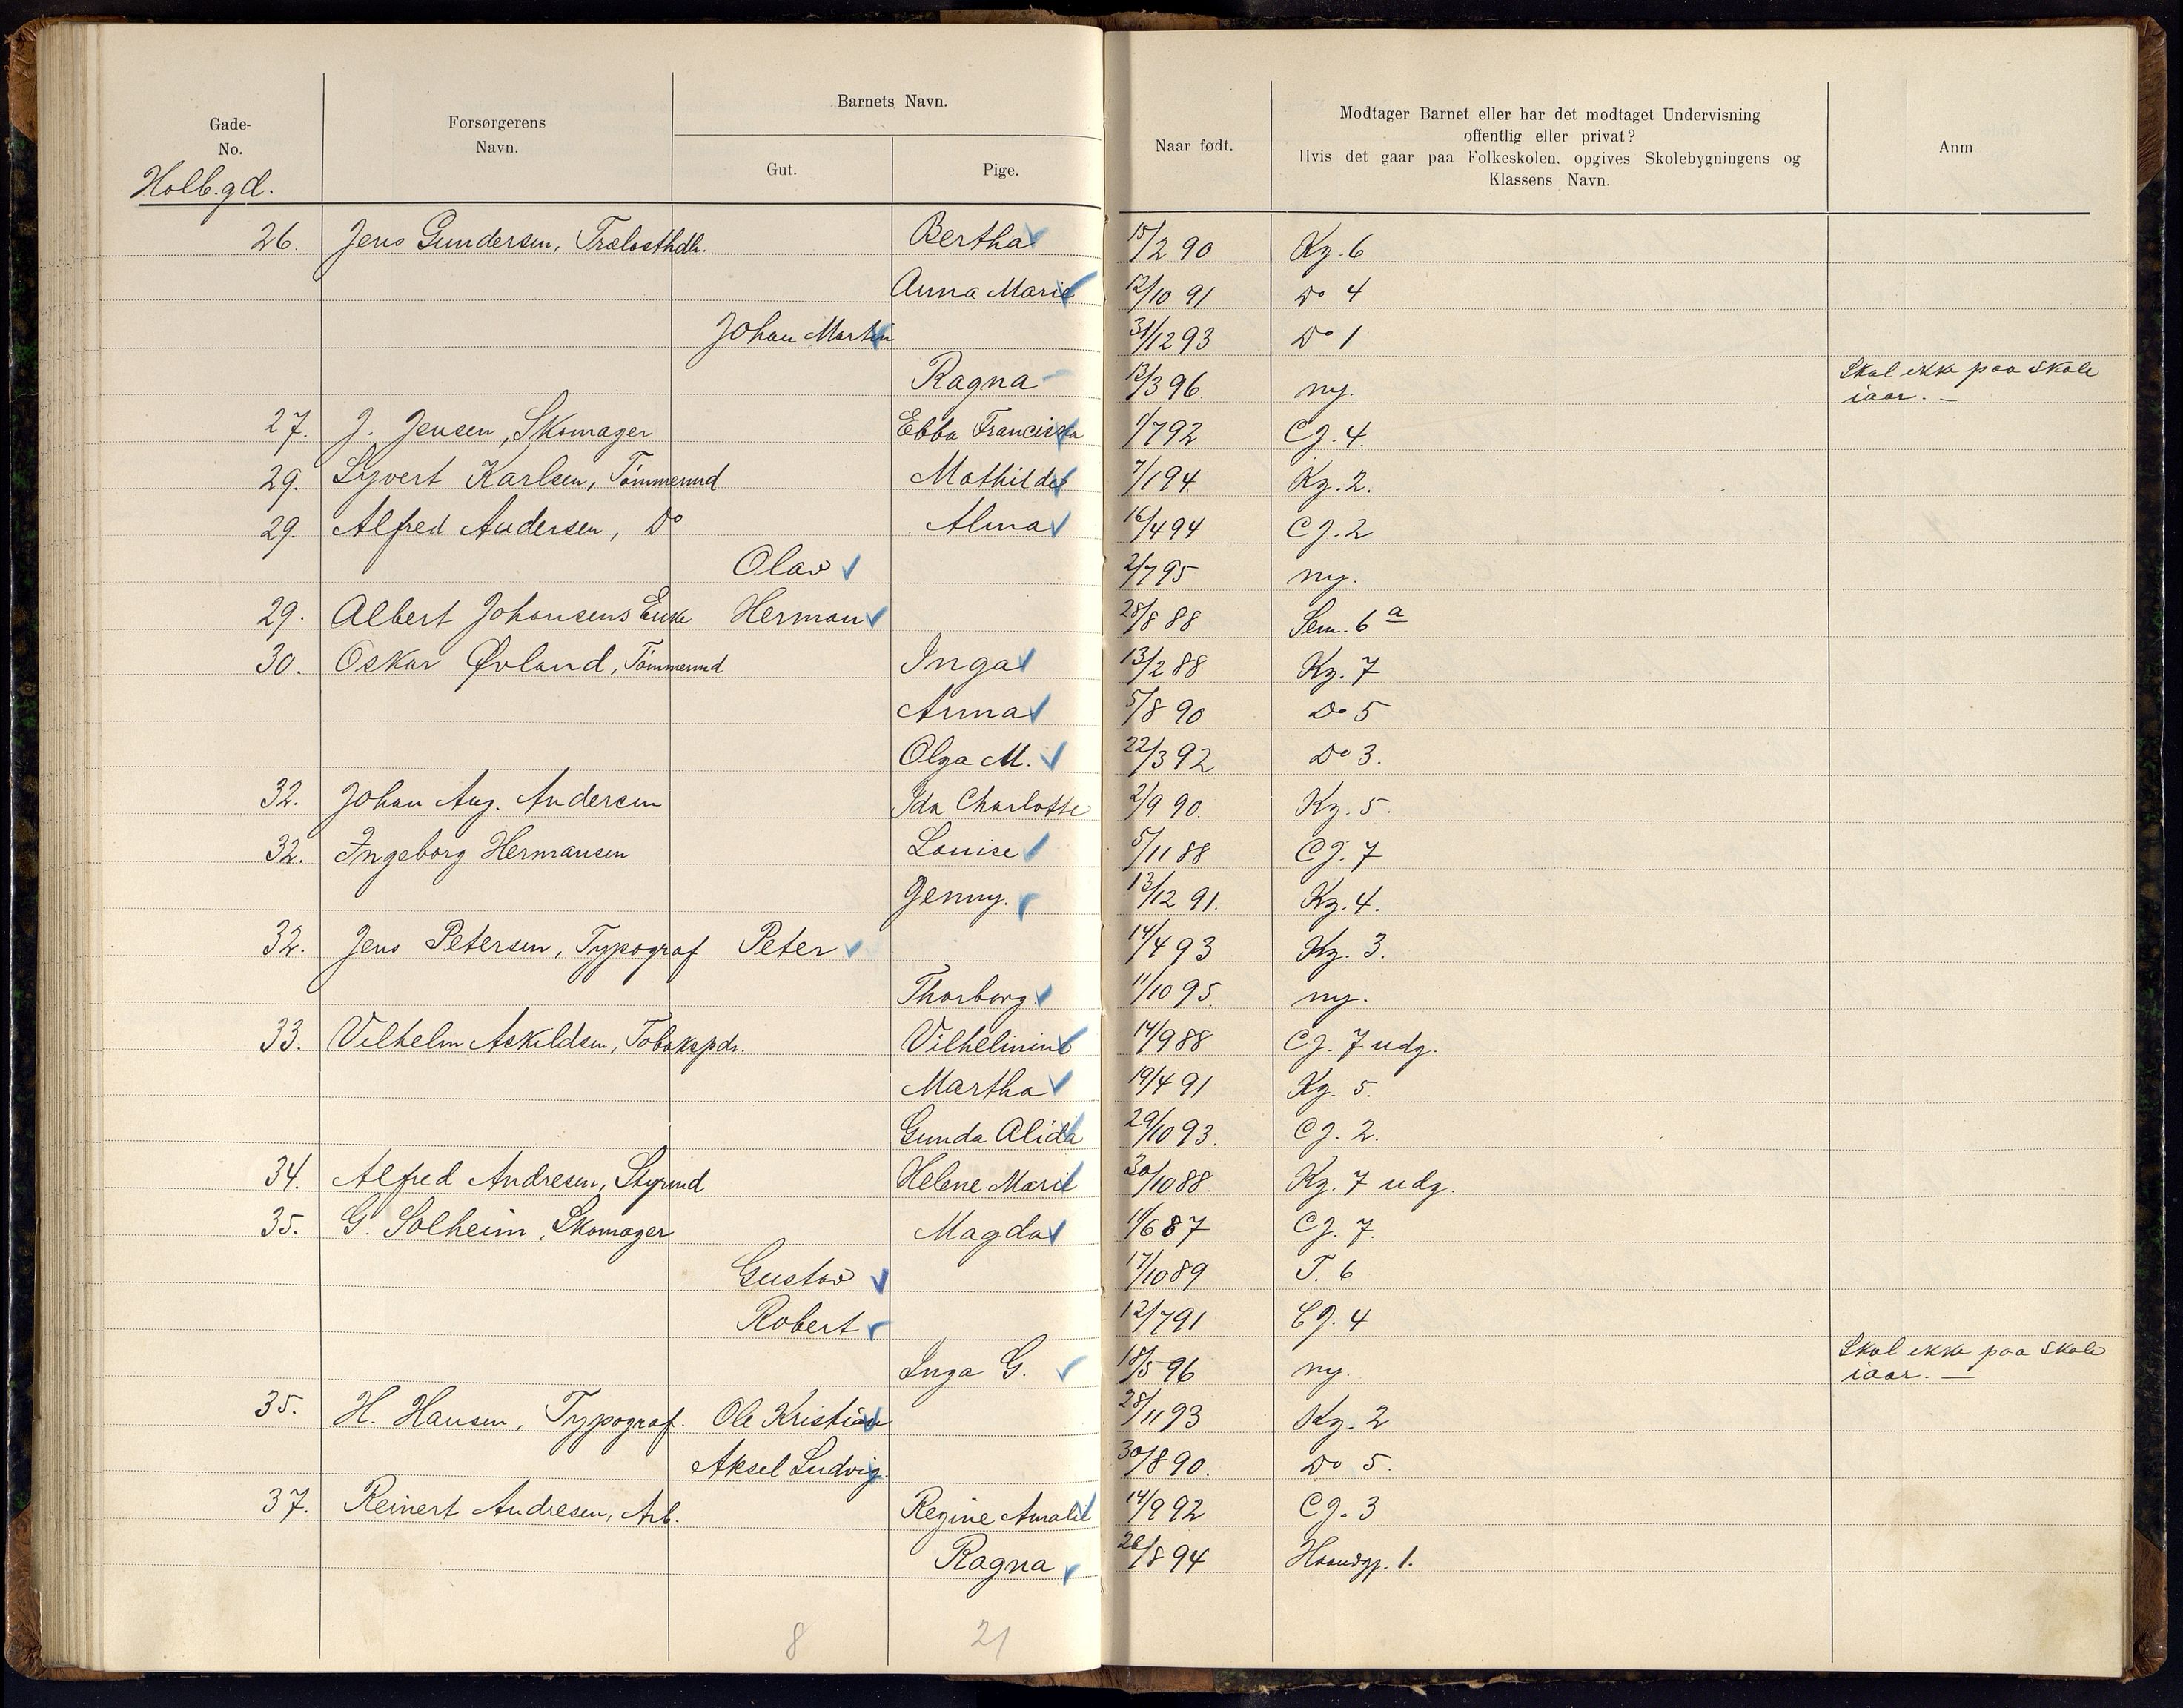 Gade-
No.
Forsørgerens
Navn.
Barnets Navn.
Gut.
Pige.
Naar født.
Modtager Barnet eller har det modtaget Undervisning
offentlig eller privat?
Hvis det gaar paa Folkeskolen, opgives Skolebygningens og
Klassens Navn.
Anm
Holb.gd.
26. Jens Gundersen, Trælasthdlr. Bertha 15/2 90 Kg. 6
Anna Marie 12/10 91 Do 4
Johan Martin 31/12 93 Do 1
Ragna 13/3 96 ny. Skal ikke paa Skole
iaar. —
27. J. Jensen, Skomager Ebba Franciska 1/7 92 CJ. 4.
29. Syvert Karlsen, Tømmermd Mathilde 7/1 94 Kg. 2.
29. Alfred Andersen, Do Alma 16/4 94 CJ. 2
Olav 2/7 95 ny.
29. Albert Johansens Enke Herman 28/8 88 Sem. 6 a
30. Oskar Øvland, Tømmermd Inga 13/2 88 Kg. 7
Anna 5/8 90 Do 5
Olga M. 22/3 92 Do 3.
32. Johan Aug. Andersen Ida Charlotte 2/9 90. Kg. 5.
32. Ingeborg Hermansen Louise 5/11 88 CJ. 7
Jenny. 13/12 91. Kg. 4.
32. Jens Petersen, Typograf Peter 14/4 93 Kg. 3.
Thorborg. 11/10 95. ny.
33. Vilhelm Askildsen, Tobakspdr. Vilhelmine 14/9 88 CJ. 7 udg.
Martha 19/4 91 Kg. 5.
Gunda Alida 29/10 93. CJ. 2.
34. Alfred Andresen, Styrmd Helene Marie 30/10 88. Kg. 7 udg.
35. G. Solheim, Skomager Magda 11/6 87 CJ. 7.
Gustav 17/10 89 T. 6
Robert 12/7 91 CJ. 4
Inga G. 18/5 96 ny. Skal ikke paa Skole
iaar. —
35. H. Hansen, Typograf. Ole Kristian 28/11 93 Kg. 2
Aksel Ludvig. 30/8 90. Do 5.
37. Reinert Andresen, Arb. Regine Amalie 14/9 92 CJ. 3
Ragna 26/8 94 Haandgj. 1.
8 21